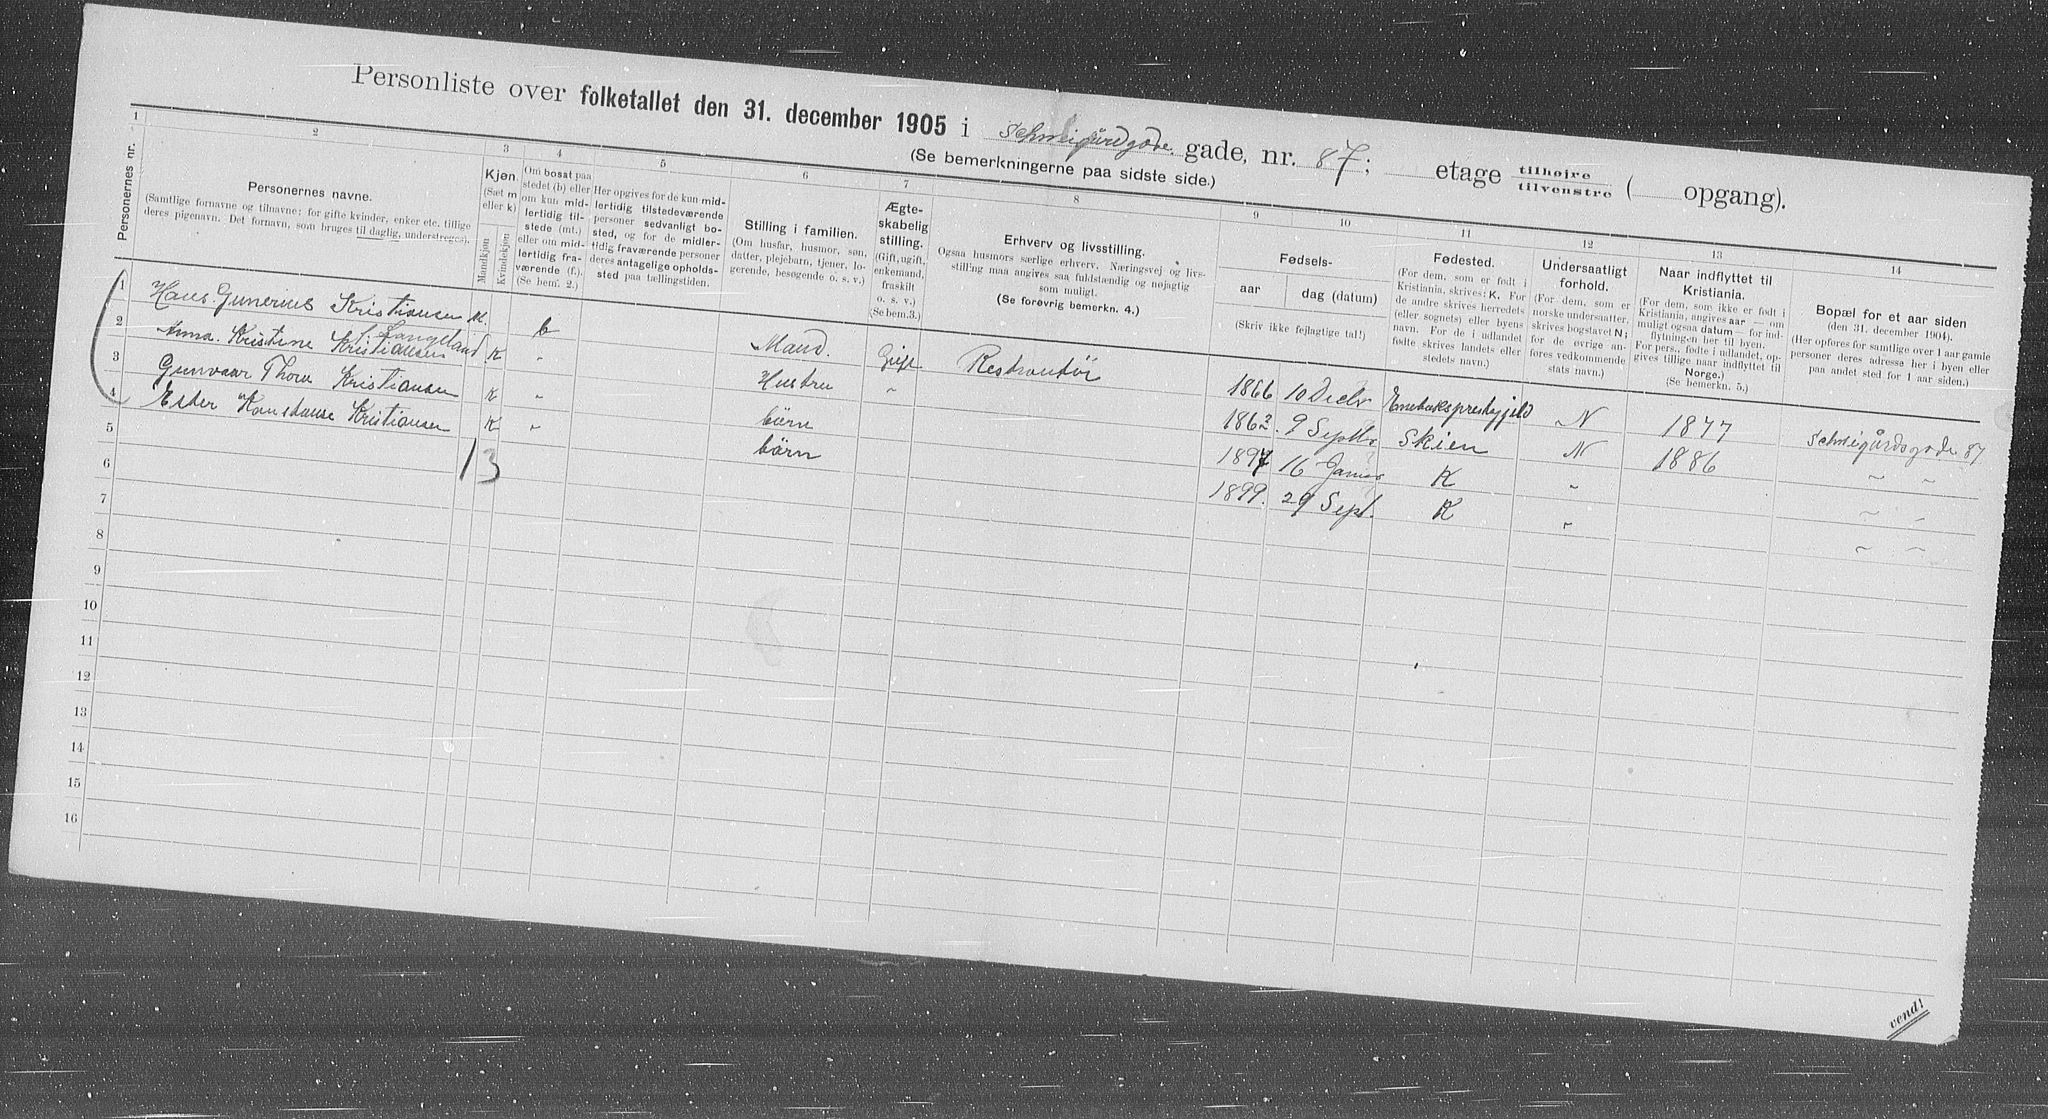 Personliste over folketallet den 31. december 1905 i Schweigårdgade. gade, nr. 87; etage tilhøjre tilvenstre ( opgang).
(Se bemerkningerne paa sidste side.)
1 2 3 4 5 6 7 8 9 10 11 12 13 14
Personernes nr.
Personernes navne.
(Samtlige fornavne og tilnavne; for gifte kvinder, enker etc. tillige
deres pigenavn. Det fornavn, som bruges til daglig, understreges).
Kjøn.
(Sæt m
eller k)
Mandkjøn
Kvindekjøn
Om bosat paa
stedet (b) eller
om kun mid-
lertidig til-
stede (mt.)
eller om mid-
lertidig fra-
værende (f.).
(Se bem. 2.)
Her opgives for de kun mid-
lertidig tilstedeværende
personer sedvanligt bo-
sted, og for de midler-
tidig fraværende personer
deres antagelige opholds-
sted paa tællingstiden.
Stilling i familien.
(Om husfar, husmor, søn,
datter, plejebarn, tjener, lo-
gerende, besøgende o. s. v.)
Ægte-
skabelig
stilling.
(Gift, ugift,
enkemand,
fraskilt
o. s. v.)
(Se bem.3.)
Erhverv og livsstilling.
Ogsaa husmors særlige erhverv. Næringsvej og livs-
stilling maa angives saa fuldstændig og nøjagtig
som muligt.
(Se forøvrig bemerkn. 4.)
Fødsels-
aar
dag (datum)
(Skriv ikke fejlagtige tal!)
Fødested.
(For dem, som er født i
Kristiania, skrives: K. For
de andre skrives herredets
(eller sognets) eller byens
navn. For de i udlandet
fødte skrives landets eller
stedets navn.)
Undersaatligt
forhold.
(For dem, som er
norske undersaatter,
skrives bogstavet N;
for de øvrige an-
føres vedkommende
stats navn.)
Naar indflyttet til
Kristiania.
(For dem, som ikke er født i
Kristiania, angives aar — om
muligt ogsaa datum — for ind-
flytningen her til byen.
For pers., fødte i udlandet, op-
gives tillige naar indflyttet til
Norge.)
(Se bemerkn. 5.)
Bopæl for et aar siden
(den 31. december 1904).
(Her opføres for samtlige over 1 aar gamle
personer deres adresse her i byen eller
paa andet sted for 1 aar siden.)
1 Hans Gunerius Kristiansen M. b Mand. Gift Restrantør 1866 10 Decbr Enebaksprestegjeld N 1877 Schweigårdsgade 87
f. Langeland
2 Anna. Kristine Kristiansen K " Hustru " 1863. 9 Septbr Skien N 1886 " "
3 Gunvaar Thora Kristiansen K " börn 1897 16 Januar K " " "
4 Ester Konstanse Kristiansen K " börn 1899. 29 Sept. K " " "
1 3
5
6
7
8
9
10
11
12
13
14
15
16
vend!